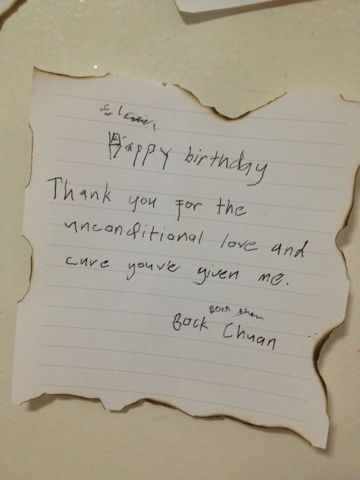 Happy birthday
Thank you for the
unconditional love and
care you've given me.
Bock Chuan